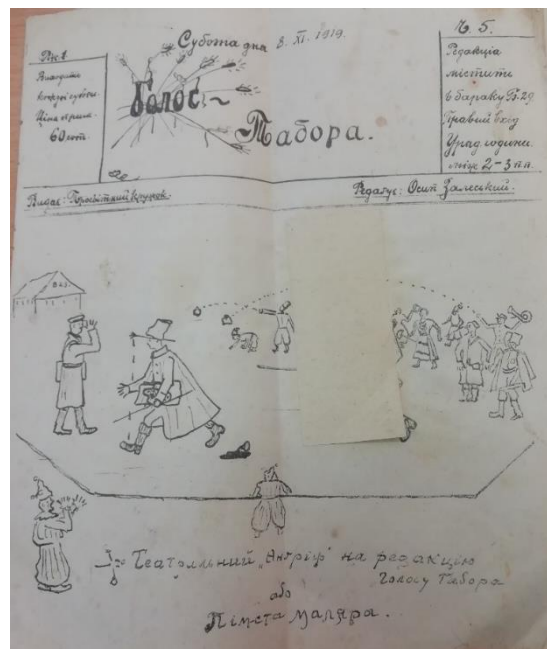 Субота дня 8. XI. 1919.
Ч. 5.
Рік I.
Виходить
щосуботи.
Ціна
60 сот.
Голос
Табора.
Редакція
містить
в бараку Б. 29.
Правий вхід
Уряд. години
між 2-3 п.п.
Видає: Просвітний кружок.
Редагує: Осип Залеський.
Театральний „Анґріф" на редакцію
Голосу Табора
або
Пімста маляра.